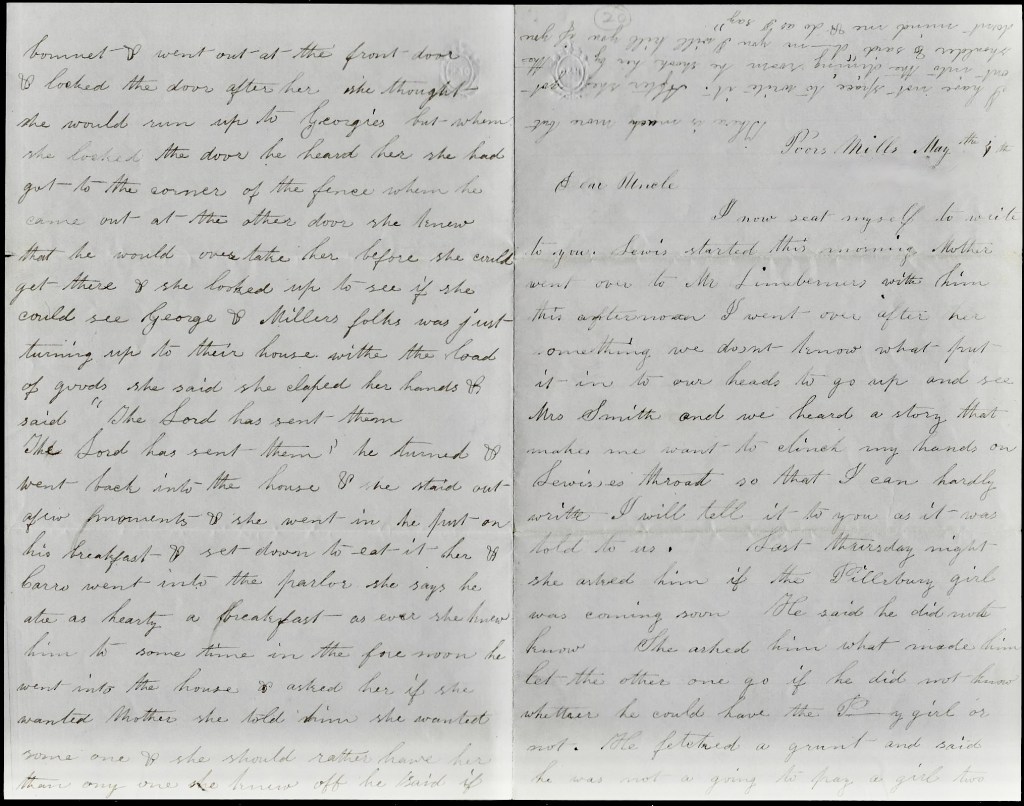 bonnet & went out at the front door
& locked the door after her she thought
she would run up to Georgies but when
she locked the door he heard her she had
got to the corner of the fence when he
came out at the other door she knew
that he would over take her before she could
get there & she looked up to see if she
could see George & Millers folks was just
turning up to their house withe the load
of goods she said she claped her hands &
said " The Lord has sent them
The Lord has sent them" he turned &
went back into the house & she staid out
afew moments & she went in he put on
his breakfast & set down to eat it her &
Carro went into the parlor she says he
ate as hearty a breakfast as ever she knew
him to some time in the fore noon he
went into the house & asked her if she
wanted Mother she told him she wanted
some one & she should rather have her
than any one she knew off he said if
There is much more but
I have not space to write it. After she got
out into the dining room he shook her by the
shoulder & said d—n you I will kill you if you
dont mind me & do as I say"
Poors Mills May th 4 th
Dear Uncle
I now seat myself to write
to you. Lewis started this morning Mother
went over to Mr Limeberners with him
this afternoon I went over after her
something we dosnt know what put
it in to our heads to go up and see
Mrs Smith and we heard a story that
makes me want to clinch my hands on
Lewis,es throat so that I can hardly
write I will tell it to you as it was
told to us. Last thursday night
she asked him if the Pillsbury girl
was coming soon He said he did note
know She asked him what made him
let the other one go if he did not know
whether he could have the P—y girl or
not. He fetched a grunt and said
he was not a going to pay a girl two